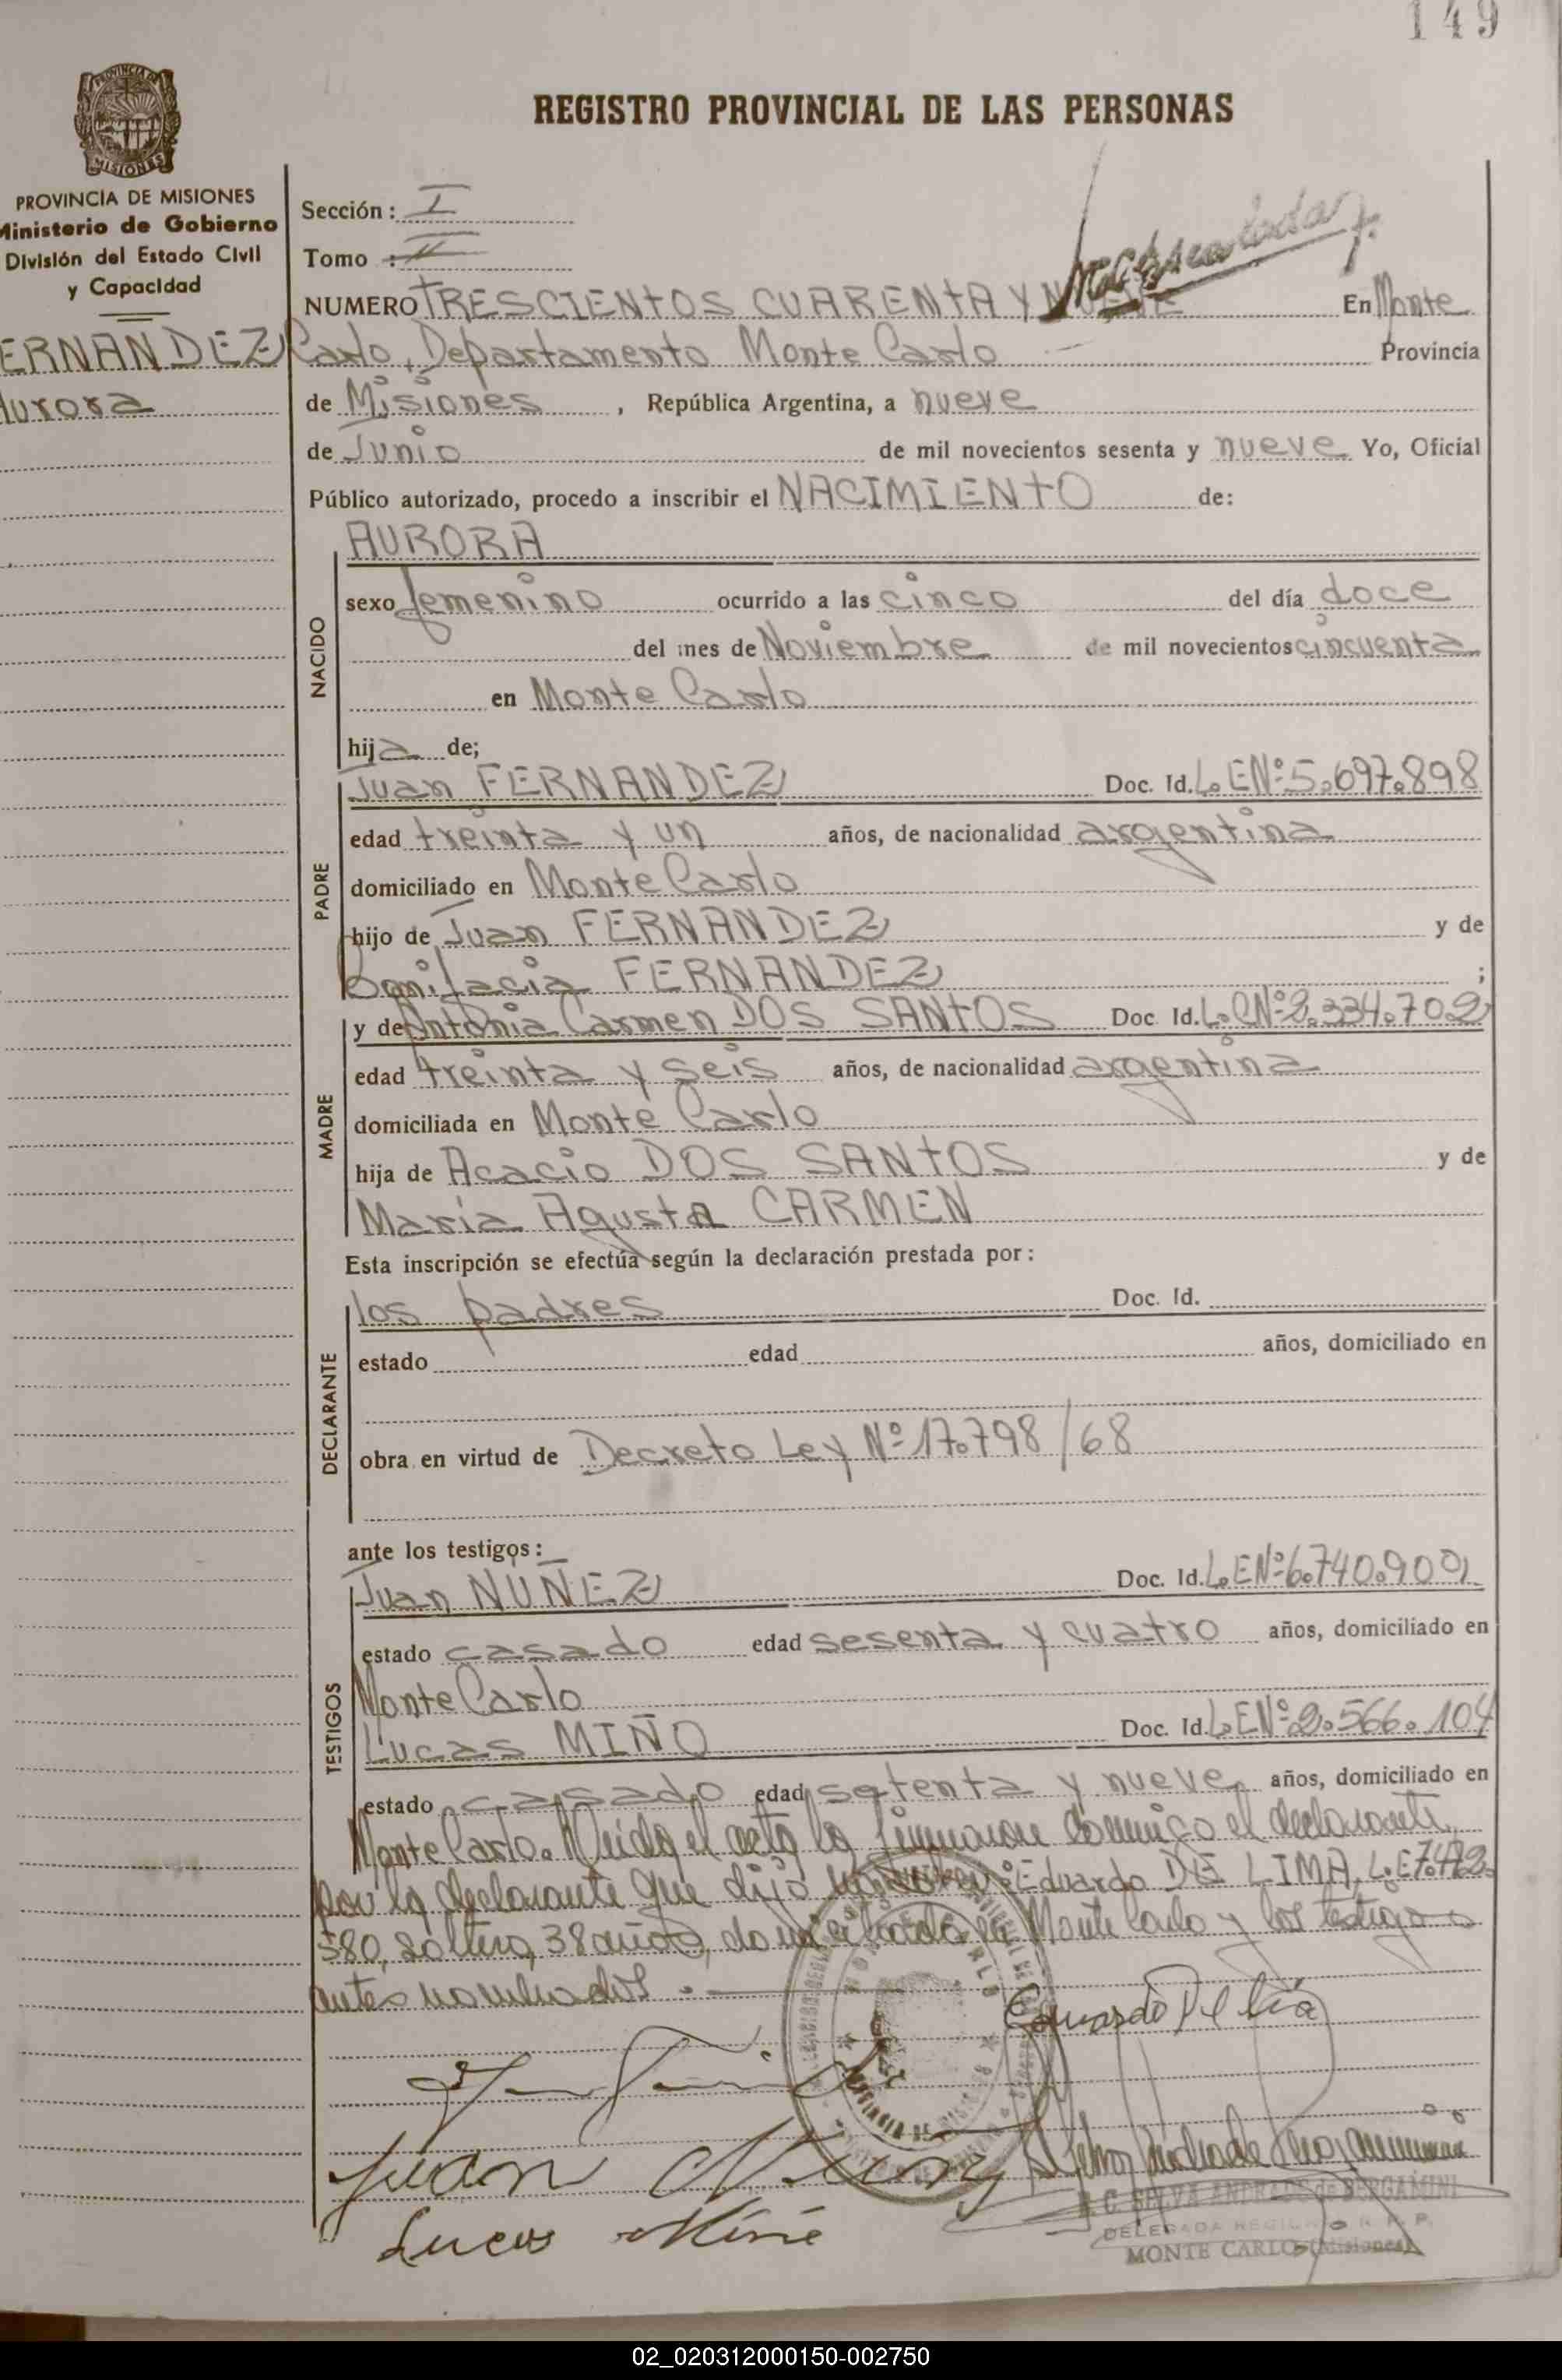 149
REGISTRO PROVINCIAL DE LAS PERSONAS
PROVINCIA DE MISIONES
PROVINCIA DE MISIONES
Ministerio de Gobierno
División del Estado Civil
y Capacidad
ERNANDEZ
Aurora
Sección: I
Tomo : II
NUMERO TRESCIENTOS CUARENTA Y NUEVE En Monte
Carlo, Departamento Monte Carlo Provincia
de Misiones, República Argentina, a nueve
de Junio de mil novecientos sesenta y nueve Yo, Oficial
Público autorizado, procedo a inscribir el NACIMIENTO de:
NACIDO
AURORA
sexo femenino ocurrido a las cinco del día doce
del mes de Noviembre de mil novecientos cincuenta
en Monte Carlo
hija de;
PADRE
Juan FERNANDEZ Doc. Id. L.EN°:5.697.898
edad treinta y un años, de nacionalidad argentina
domiciliado en Monte Carlo
hijo de Juan FERNANDEZ y de
Bonifacia FERNANDEZ ;
MADRE
y de Antonia Carmen DOS SANTOS Doc. Id. L.CN°2.334.702
edad treinta y seis años, de nacionalidad argentina
domiciliada en Monte Carlo
hija de Acacio DOS SANTOS y de
María Agusta CARMEN
Esta inscripción se efectúa según la declaración prestada por:
DECLARANTE
los padres Doc. Id.
estado edad años, domiciliado en
obra en virtud de Decreto Ley N°17.798/68
ante los testigos:
TESTIGOS
Juan NUNEZ Doc. Id. L.EN°:6.740.900
estado casado edad sesenta y cuatro años, domiciliado en
Monte Carlo
Lucas MIÑO Doc. Id. L.EN°:2.566.104
estado casado edad setenta y nueve años, domiciliado en
Monte Carlo. Leida el acta la firmaron conmigo el declarante,
por la declarante que dijo Eduardo DE LIMA, L.E7.472.
580, soltero, 38 años, domiciliado en Monte Carlo y los testigos
antes nombrados.
Eduardo De
Juan Nunez
Lucas Miño
SELVA ANDRADE de BERGAMINI
DELEGADA R. P. P.
MONTE CARLO (Misiones)
02_020312000150-002750